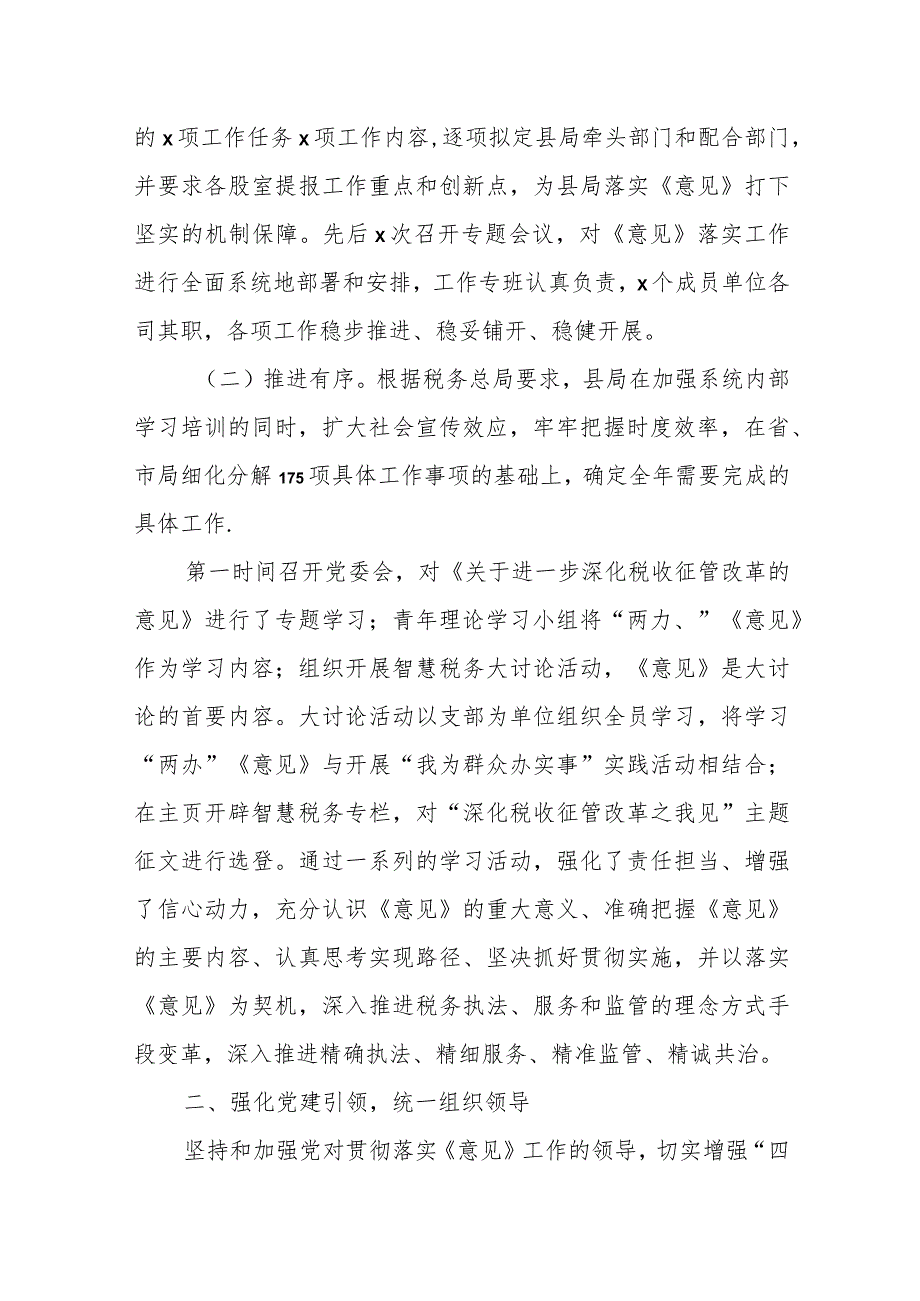 的x项工作任务x项工作内容,逐项拟定县局牵头部门和配合部门，
并要求各股室提报工作重点和创新点，为县局落实《意见》打下
坚实的机制保障。先后x次召开专题会议，对《意见》落实工作
进行全面系统地部署和安排，工作专班认真负责，x个成员单位各
司其职，各项工作稳步推进、稳妥铺开、稳健开展。
（二）推进有序。根据税务总局要求，县局在加强系统内部
学习培训的同时，扩大社会宣传效应，牢牢把握时度效率，在省、
市局细化分解175项具体工作事项的基础上，确定全年需要完成的
具体工作.
第一时间召开党委会，对《关于进一步深化税收征管改革的
意见》进行了专题学习；青年理论学习小组将“两力、”《意见》
作为学习内容；组织开展智慧税务大讨论活动，《意见》是大讨
论的首要内容。大讨论活动以支部为单位组织全员学习，将学习
“两办”《意见》与开展“我为群众办实事”实践活动相结合；
在主页开辟智慧税务专栏，对“深化税收征管改革之我见”主题
征文进行选登。通过一系列的学习活动，强化了责任担当、增强
了信心动力，充分认识《意见》的重大意义、准确把握《意见》
的主要内容、认真思考实现路径、坚决抓好贯彻实施，并以落实
《意见》为契机，深入推进税务执法、服务和监管的理念方式手
段变革，深入推进精确执法、精细服务、精准监管、精诚共治。
二、强化党建引领，统一组织领导
坚持和加强党对贯彻落实《意见》工作的领导，切实增强“四